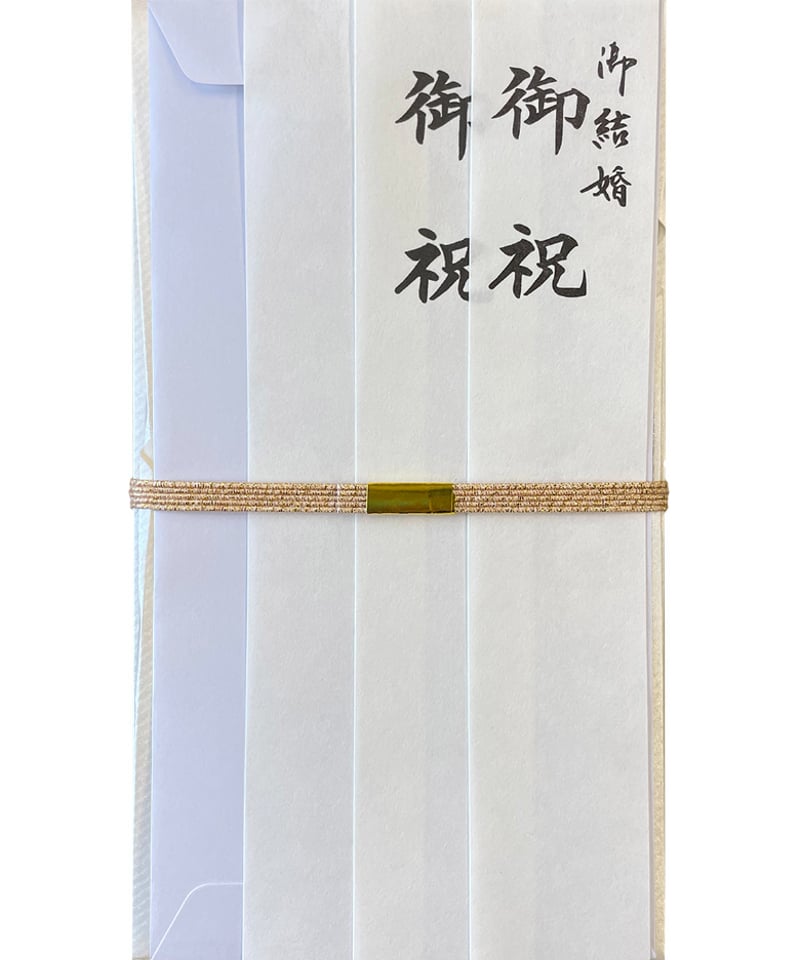 御結婚
御祝
御祝